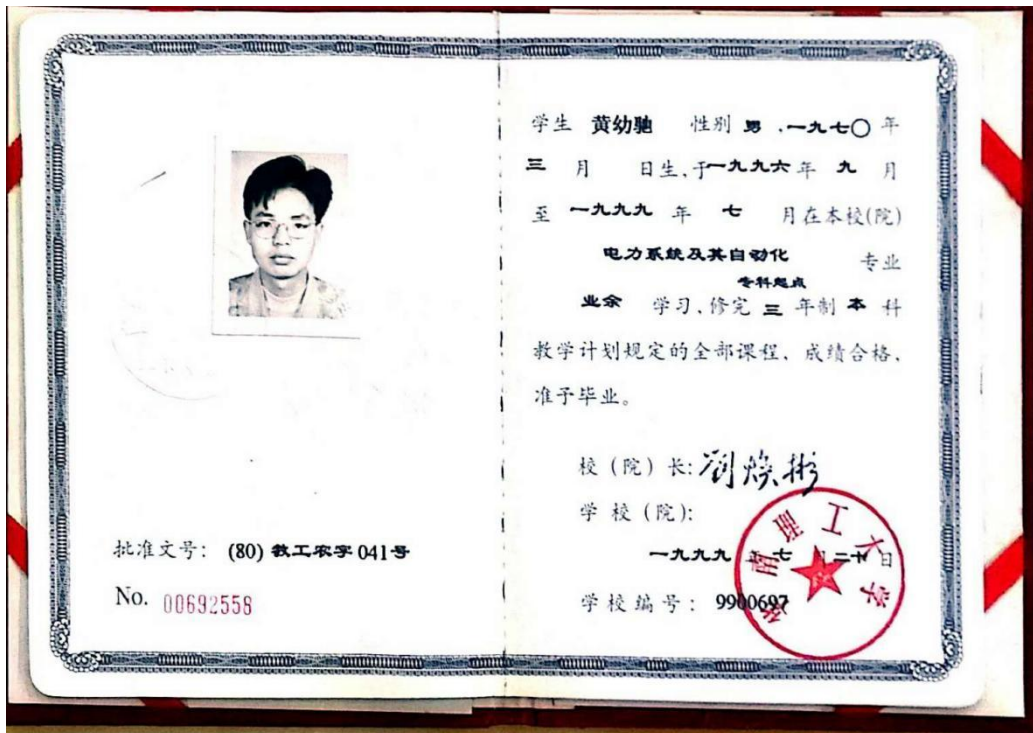 批准文号： (80) 教工农字 041号
No. 00692558
学生 黄幼驰 性别 男 ,一九七〇 年
三 月 日生,于一九九六 年 九 月
至 一九九九 年 七 月在本校(院)
电力系统及其自动化 专业
专科起点
业余 学习,修完 三 年制 本 科
教学计划规定的全部课程、成绩合格,
准予毕业。
校 (院) 长: 刘焕彬
学 校 (院):
华南理工大学
一九九九 年 七 月 二十 日
学校编号： 9900697